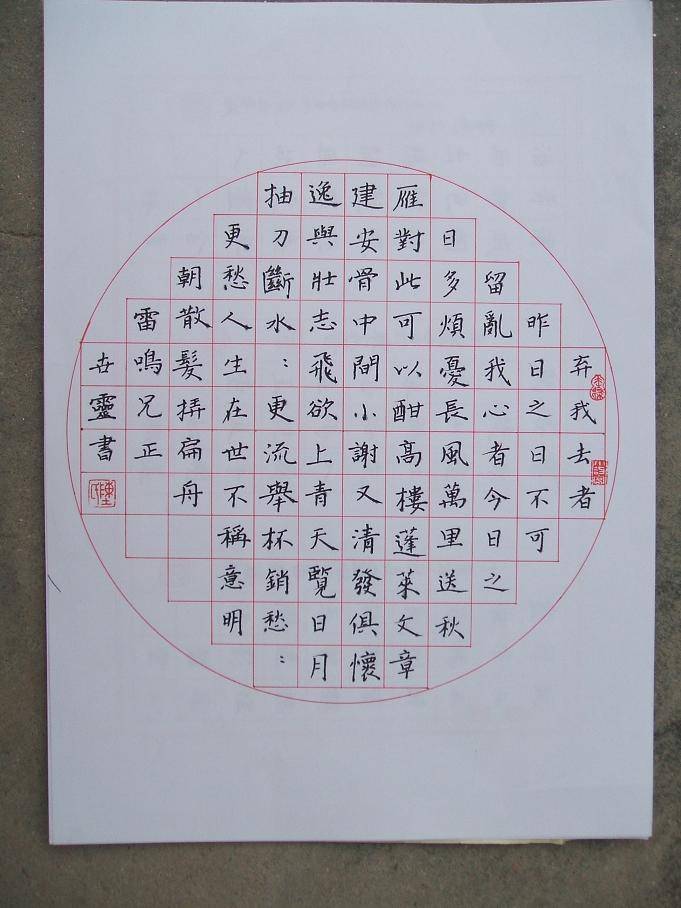 弃我去者
昨日之日不可
留亂我心者今日之
日多煩憂長風萬里送秋
雁對此可以酣高樓蓬萊文章
建安骨中間小謝又清發俱懷
逸與壯志飛欲上青天覽日月
抽刀斷水：更流舉杯銷愁：
更愁人生在世不稱意明
朝散髮挵扁舟
雷鳴兄正
世靈書